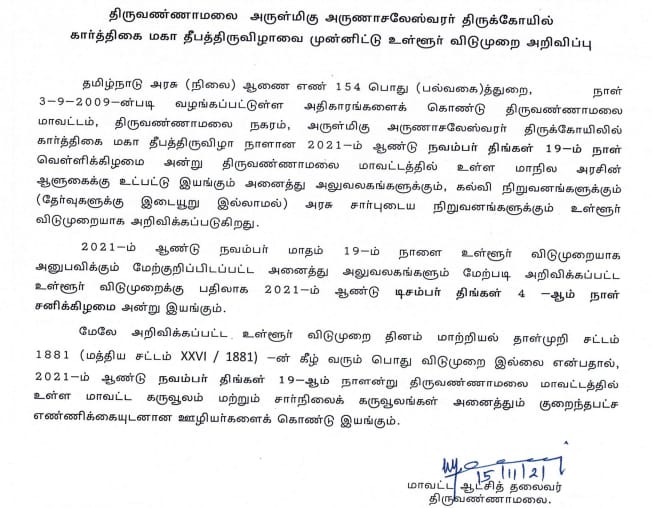 திருவண்ணாமலை அருள்மிகு அருணாசலேஸ்வரர் திருக்கோயில்
கார்த்திகை மகா தீபத்திருவிழாவை முன்னிட்டு உள்ளூர் விடுமுறை அறிவிப்பு
தமிழ்நாடு அரசு (நிலை) ஆணை எண் 154 பொது (பல்வகை)த்துறை, நாள்
3-9-2009-ன்படி வழங்கப்பட்டுள்ள அதிகாரங்களைக் கொண்டு திருவண்ணாமலை
மாவட்டம், திருவண்ணாமலை நகரம், அருள்மிகு அருணாசலேஸ்வரர் திருக்கோயிலில்
கார்த்திகை மகா தீபத்திருவிழா நாளான 2021-ம் ஆண்டு நவம்பர் திங்கள் 19-ம் நாள்
வெள்ளிக்கிழமை அன்று திருவண்ணாமலை மாவட்டத்தில் உள்ள மாநில அரசின்
ஆளுகைக்கு உட்பட்டு இயங்கும் அனைத்து அலுவலகங்களுக்கும், கல்வி நிறுவனங்களுக்கும்
(தேர்வுகளுக்கு இடையூறு இல்லாமல்) அரசு சார்புடைய நிறுவனங்களுக்கும் உள்ளூர்
விடுமுறையாக அறிவிக்கப்படுகிறது.
2021-ம் ஆண்டு நவம்பர் மாதம் 19-ம் நாளை உள்ளூர் விடுமுறையாக
அனுபவிக்கும் மேற்குறிப்பிடப்பட்ட அனைத்து அலுவலகங்களும் மேற்படி அறிவிக்கப்பட்ட
உள்ளூர் விடுமுறைக்கு பதிலாக 2021-ம் ஆண்டு டிசம்பர் திங்கள் 4 -ஆம் நாள்
சனிக்கிழமை அன்று இயங்கும்.
மேலே அறிவிக்கப்பட்ட உள்ளூர் விடுமுறை தினம் மாற்றியல் தாள்முறி சட்டம்
1881 (மத்திய சட்டம் XXVI / 1881) -ன் கீழ் வரும் பொது விடுமுறை இல்லை என்பதால்,
2021-ம் ஆண்டு நவம்பர் திங்கள் 19-ஆம் நாளன்று திருவண்ணாமலை மாவட்டத்தில்
உள்ள மாவட்ட கருவூலம் மற்றும் சார்நிலைக் கருவூலங்கள் அனைத்தும் குறைந்தபட்ச
எண்ணிக்கையுடனான ஊழியர்களைக் கொண்டு இயங்கும்.
15/11/21
மாவட்ட ஆட்சித் தலைவர்
திருவண்ணாமலை.